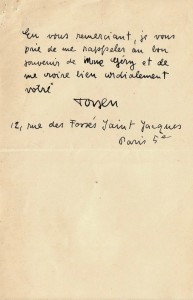 En vous remerciant, je vous
prie de me rappeler au bon
souvenir de Mme Géry et de
me croire bien cordialement
votre
12, rue des Fossés Saint Jacques
Paris 5e